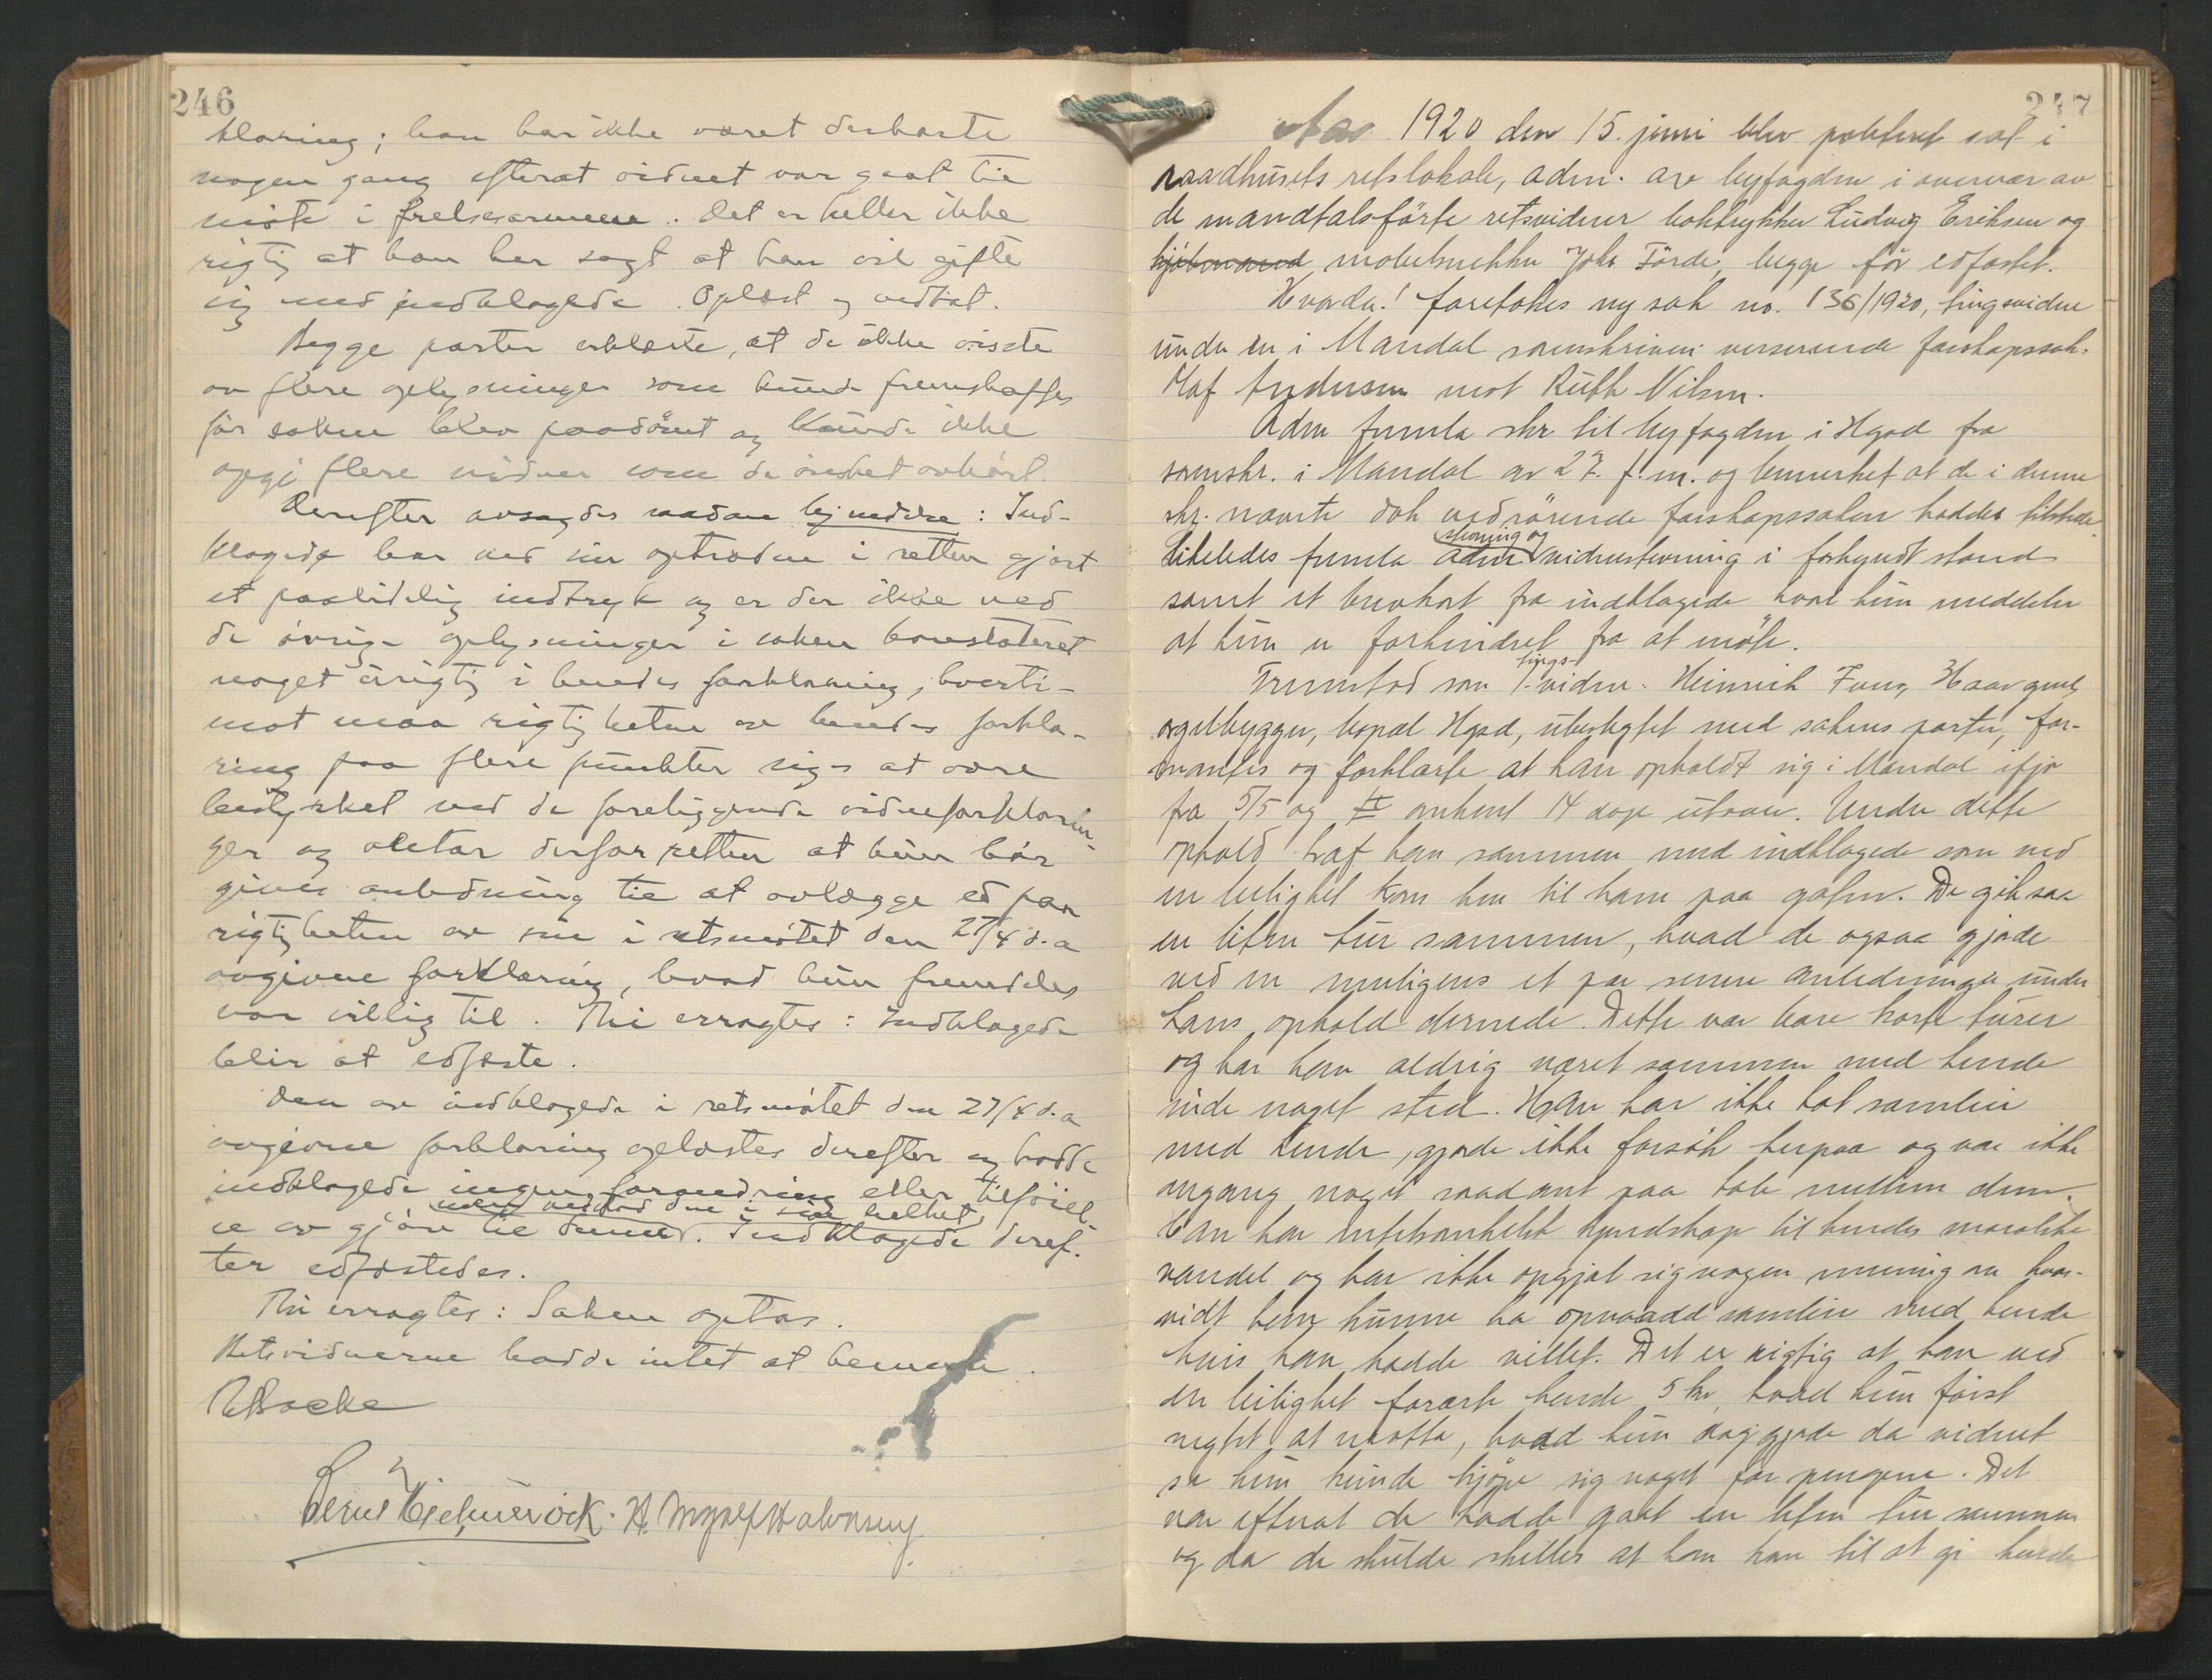 246
klaring; han har ikke været derborte
nogen gang efterat vidnet var gaat til
møte i frelsesarmeen. Det er heller ikke
rigtig at han har sagt at han vil gifte
sig med indklagede. Oplæst og vedtat.
Begge parter erklærte, at de ikke visste
av flere oplysninger som kunde fremskaffes
før saken blev paadømt og kunde ikke
opgi flere vidner som de ønsket avhørt.
Derefter avsagdes saadan kjendelse: Ind-
klagede har ved sin optræden i retten gjort
et paalidelig indtryk og er der ikke ved
de øvrige oplysninger i saken konstateret
noget urigtig i hendes forklaring, hverti-
mot maa rigtigheten av hendes forkla-
ring paa flere punkter siges at være
bestyrket ved de foreliggende vidneforklarin-
ger og agtar derfor retten at hun bør
gives anledning til at avlægge ed paa
rigtigheten av sin i retsmøtet den 27/4 d.a
avgivne forklaring, hvad hun fremdeles
var villig til. Thi eragtes: Indklagede
blir at edfæste.
Den av indklagede i retsmøtet den 27/4 d.a
avgivne forklaring oplæstes derefter og hadde
indklagede ingen forandring eller tilføiel-
men vedtod den i sin helhet
se av gjøre til denne. Indklagede deref-
ter edfæstedes.
Thi eragtes: Saken optas.
Retsvidnerne hadde intet at bemerke.
247
Aar 1920 den 15. juni blev politiret sat i
raadhusets retslokale, adm. av byfogden i overvær av
de mandtalsførte retsvidner boktrykker Ludvig Eriksen og
kjøbmand møbelsnekker Johs Førde, begge før edfæstet.
Hvorda! foretokes ny sak no. 136/1920, tingsvidne
under en i Mandal sorenskriveri verserende farskapssak.
Olaf Andersen mot Ruth Nilsen.
Adm fremla skr til byfogden i Hgsd fra
sorenskr. i Mandal av 27. f.m. og bemerket at de i denne
skr. nævnte dok vedrørende farskapssaken haddes tilstede.
stevning og
Likeledes fremla adm. vidnestevning i forkyndt stand
samt et brevkort fra indklagede hvori hun meddeler
at hun er forhindret fra at møte.
tings-
Fremstod som 1. vidne: Heinrich
orgelbygger, bopæl Hgsd, ubeslegtet med sakens parter, for-
mantes og forklarte at han opholdt sig i Mandal ifjor
fra 5/5 og omtrent 14 dage utover. Under dette
ophold traf han sammen med indklagede som ved
en leilighet kom hen til ham paa gaten. De gik saa
en liten tur sammen, hvad de ogsaa gjorde
ved en muligens et par senere anledninger under
hans ophold dernede. Dette var bare korte turer
og har han aldrig været sammen med hende
inde noget sted. Han har ikke hat samleie
med hende, gjorde ikke forsøk herpaa og var ikke
engang noget saadant paa tale mellem dem.
Han har intetsomhelst kjendskap til hendes moralske
vandel og har ikke opgjort sig nogen mening om hvor-
vidt han kunne ha opnaadd samleie med hende
hvis han hadde villet. Det er rigtig at han ved
en leilighet forærte hende 5 kr, hvad hun først
negtet at motta, hvad hun dog gjorde da vidnet
sa hun kunde kjøpe sig noget for pengene. Det
var efterat de hadde gaat en liten tur sammen
og da de skulde skilles at han kom til at gi hende